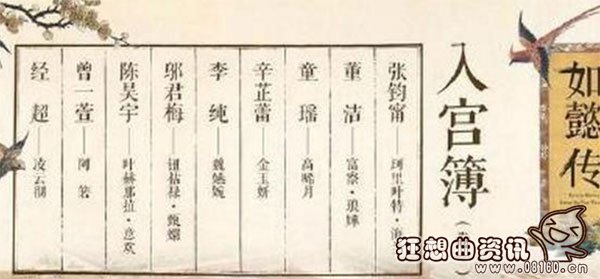 如懿传
入宫簿
张钧甯——珂里叶特·海
董洁——富察·琅嬅
童瑶——高晞月
辛芷蕾——金玉妍
李纯——魏嬿婉
邬君梅——钮祜禄·甄嬛
陈昊宇——叶赫那拉·意欢
曾一萱——阿箬
经超——凌云彻
狂想曲资讯
www.08160.cn